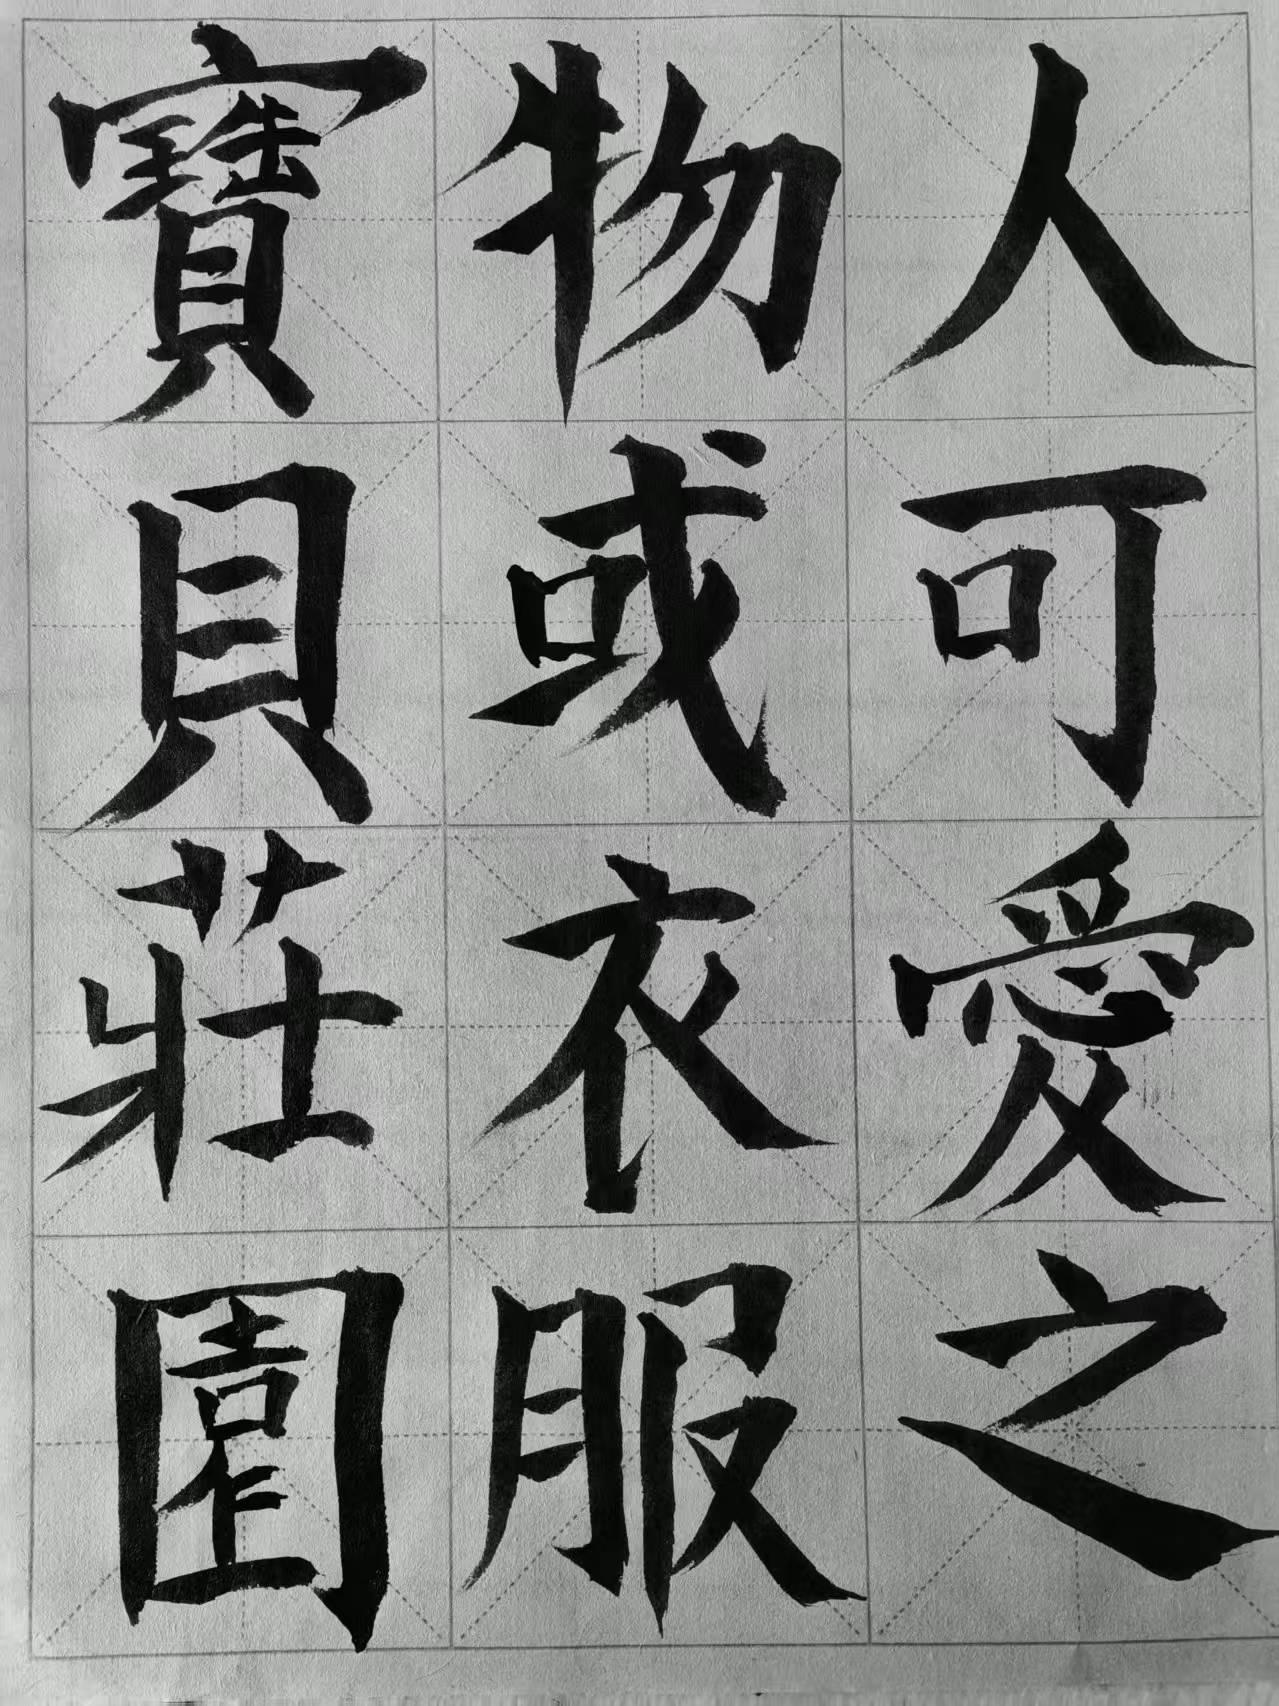 人可愛之
物或衣服
寶貝莊園